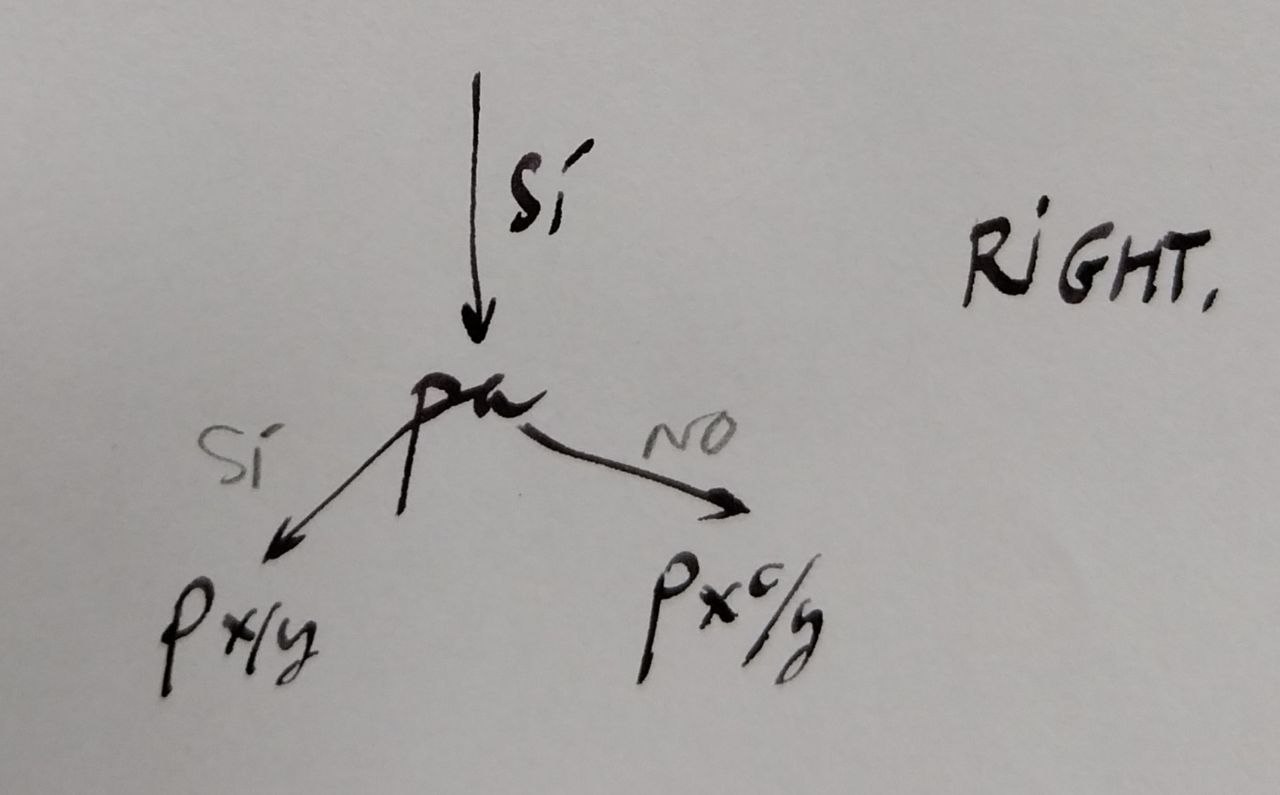 Sí
RiGHT.
pa
Sí
NO
Px/y
Pxᶜ/y